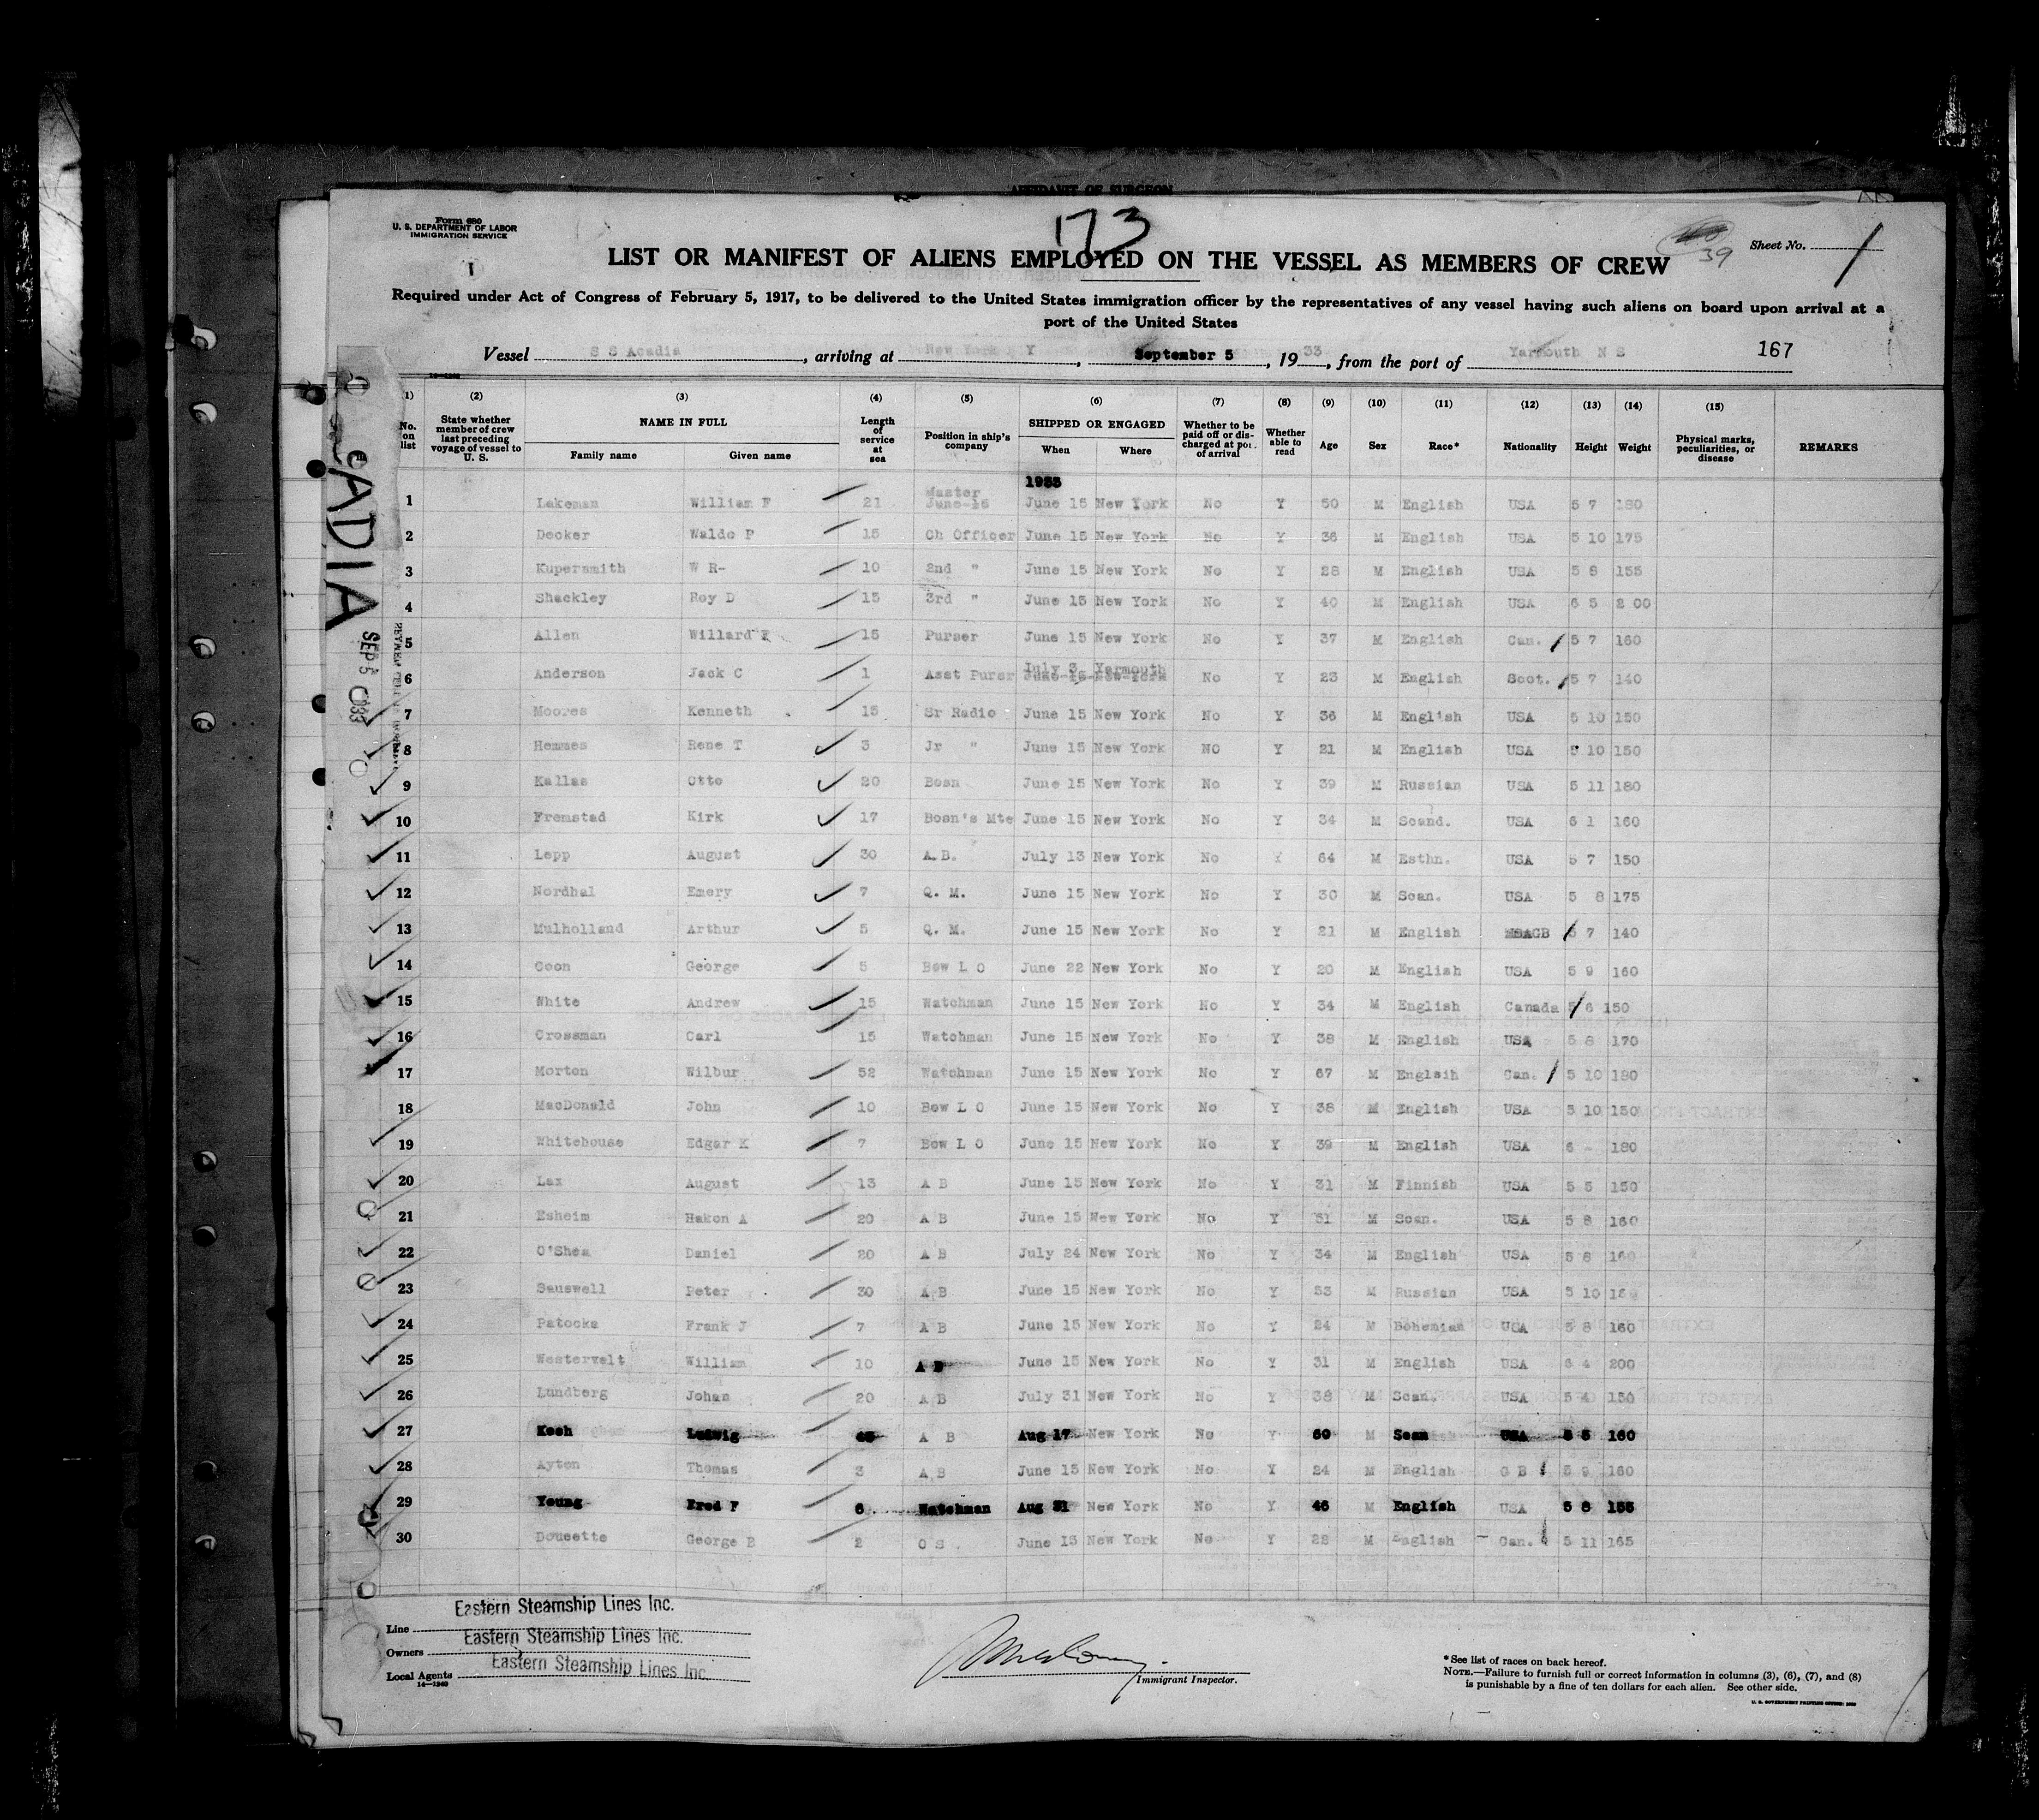 AFFIDAVIT OF SURGEON
Form 680
U. S. DEPARTMENT OF LABOR
IMMIGRATION SERVICE
173
39
Sheet No. 1
LIST OR MANIFEST OF ALIENS EMPLOYED ON THE VESSEL AS MEMBERS OF CREW
Required under Act of Congress of February 5, 1917, to be delivered to the United States immigration officer by the representatives of any vessel having such aliens on board upon arrival at a
port of the United States
Vessel S S Acadia, arriving at New York N Y, September 5, 1933, from the port of Yarmouth N S 167
(1) (2) (3) (4) (5) (6) (7) (8) (9) (10) (11) (12) (13) (14) (15)
No. on list State whether member of crew last preceding voyage of vessel to U. S. NAME IN FULL Family name Given name Length of service at sea Position in ship's company SHIPPED OR ENGAGED When Where Whether to be paid off or discharged at port of arrival Whether able to read Age Sex Race* Nationality Height Weight Physical marks, peculiarities, or disease REMARKS
1933
1 Lakeman William F 21 Master June 15 June 15 New York No Y 50 M English USA 5 7 180
2 Decker Waldo P 15 Ch Officer June 15 New York No Y 36 M English USA 5 10 175
3 Kupersmith W R- 10 2nd " June 15 New York No Y 28 M English USA 5 8 155
4 Shackley Roy D 15 3rd " June 15 New York No Y 40 M English USA 6 5 2 00
5 Allen Willard F 15 Purser June 15 New York No Y 37 M English Can. 5 7 160
6 Anderson Jack C 1 Asst Pursr July 3 Yarmouth June 15 New York No Y 23 M English Scot. 5 7 140
7 Moores Kenneth 15 Sr Radio June 15 New York No Y 36 M English USA 5 10 150
8 Hemmes Rene T 3 Jr " June 15 New York NO Y 21 M English USA 5 10 150
9 Kallas Otto 20 Bosn June 15 New York No Y 39 M Russian USA 5 11 180
10 Fremstad Kirk 17 Bosn's Mte June 15 New York No Y 34 M Scand. USA 6 1 160
11 Lepp August 30 A.B. July 13 New York No Y 64 M Esthn. USA 5 7 150
12 Nordhal Emery 7 Q. M. June 15 New York No Y 30 M Scan. USA 5 8 175
13 Mulholland Arthur 5 Q. M. June 15 New York No Y 21 M English GB 5 7 140
14 Coon George 5 Bow L O June 22 New York No Y 20 M English USA 5 9 160
15 White Andrew 15 Watchman June 15 New York No Y 34 M English Canada 5 6 150
16 Crossman Carl 15 Watchman June 15 New York No Y 38 M English USA 5 8 170
17 Morton Wilbur 52 Watchman June 15 New York No Y 67 M Englsih Can. 5 10 180
18 MacDonald John 10 Bow L O June 15 New York No Y 38 M English USA 5 10 150
19 Whitehouse Edgar K 7 Bow L O June 15 New York No Y 39 M English USA 6 - 180
20 Lax August 13 A B June 15 New York No Y 31 M Finnish USA 5 5 150
21 Esheim Hakon A 20 A B June 15 New York No Y 51 M Scan. USA 5 8 160
22 O'Shea Daniel 20 A B July 24 New York No Y 34 M English USA 5 8 160
23 Sauswell Peter 30 A B June 15 New York No Y 53 M Russian USA 5 10
24 Patocka Frank J 7 A B June 15 New York No Y 24 M Bohemian USA 5 8 160
25 Westervelt William 10 A B June 15 New York No Y 31 M English USA 6 4 200
26 Lundberg Johan 20 A B July 31 New York No Y 38 M Scan. USA 5 4 150
27 Koch Ludwig A B Aug 17 New York No Y 60 M Scan USA 5 5 160
28 Ayton Thomas 3 A B June 15 New York No Y 24 M English G B 5 9 160
29 Young Fred F 6 Watchman Aug 31 New York No Y 45 M English USA 5 8 155
30 Doucette George B 2 O S June 15 New York No Y 28 M English Can. 5 11 165
ACADIA
SEP 5 1933
Line Eastern Steamship Lines Inc.
Owners Eastern Steamship Lines Inc.
Local Agents Eastern Steamship Lines Inc
14—1240
Immigrant Inspector.
*See list of races on back hereof.
NOTE.—Failure to furnish full or correct information in columns (3), (6), (7), and (8)
is punishable by a fine of ten dollars for each alien. See other side.